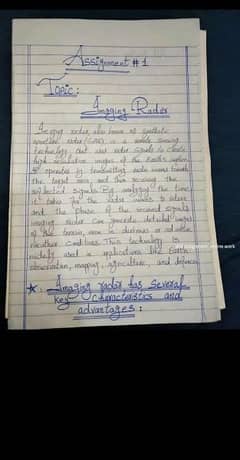 Assignment # 1
Topic:
Imaging Radar
Imaging radar, also known as synthetic
aperture radar (SAR) is a remote sensing
technology that uses radar signals to create
high resolution images of the Earth's surface.
It operates by transmitting radio waves towards
the target area and then receiving the
reflected signals. By analyzing the time
it takes for the radar waves to return
and the phase of the received signals
imaging radar can generate detailed images
of the terrain, even in darkness or adverse
weather conditions. This technology is
widely used in applications like Earth
observation, mapping, agriculture, and defence.
★: Imaging radar has several
key characteristics and
advantages: